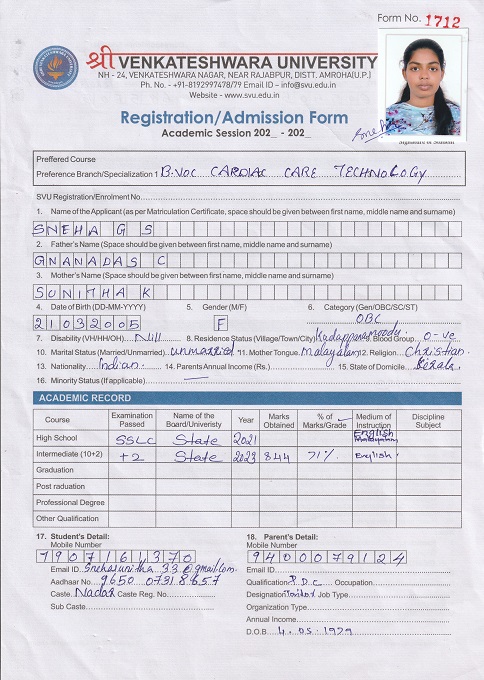 Form No. 1712
श्री VENKATESHWARA UNIVERSITY
NH - 24, VENKATESHWARA NAGAR, NEAR RAJABPUR, DISTT. AMROHA(U.P.)
Ph. No. - +91-8192997478/79 Email ID – info@svu.edu.in
Website - www.svu.edu.in
Registration/Admission Form
Academic Session 202_ - 202_
Preffered Course
Preference Branch/Specialization 1 B.VOC CARDIAC CARE TECHNOLOGY
SVU Registration/Enrolment No
1. Name of the Applicant (as per Matriculation Certificate, space should be given between first name, middle name and surname)
SNEHA G S
2. Father's Name (Space should be given between first name, middle name and surname)
GNANADAS C
3. Mother's Name (Space should be given between first name, middle name and surname)
SUNITHA K
4. Date of Birth (DD-MM-YYYY) 5. Gender (M/F) 6. Category (Gen/OBC/SC/ST)
21032005 F OBC
7. Disability (VH/HH/OH) Nill 8. Residence Status (Village/Town/City) Blood Group O-ve
10. Marital Status (Married/Unmarried) unmarried 11. Mother Tongue malayalam 12. Religion Christian
13. Nationality Indian 14. Parents Annual Income (Rs.) 15. State of Domicile Kerala
16. Minority Status (If applicable) —
ACADEMIC RECORD
Course Examination Passed Name of the Board/Univeristy Year Marks Obtained % of Marks/Grade Medium of Instruction Discipline Subject
High School SSLC State 2021 English
Intermediate (10+2) +2 State 2023 844 71% English
Graduation
Post raduation
Professional Degree
Other Qualification
17. Student's Detail: 18. Parent's Detail:
Mobile Number Mobile Number
7907161370 9400079124
Email ID Snehasunitha33@gmail.com Email ID
Aadhaar No 9650 0731 8657 Qualification P.D.C Occupation
Caste Nadar Caste Reg. No. Designation Job Type
Sub Caste Organization Type
Annual Income
D.O.B 4.05.1979